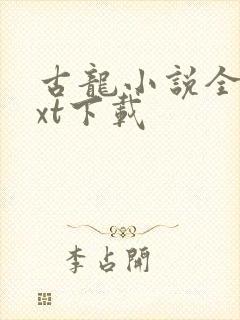 古龍小説全
xt下載
李占開